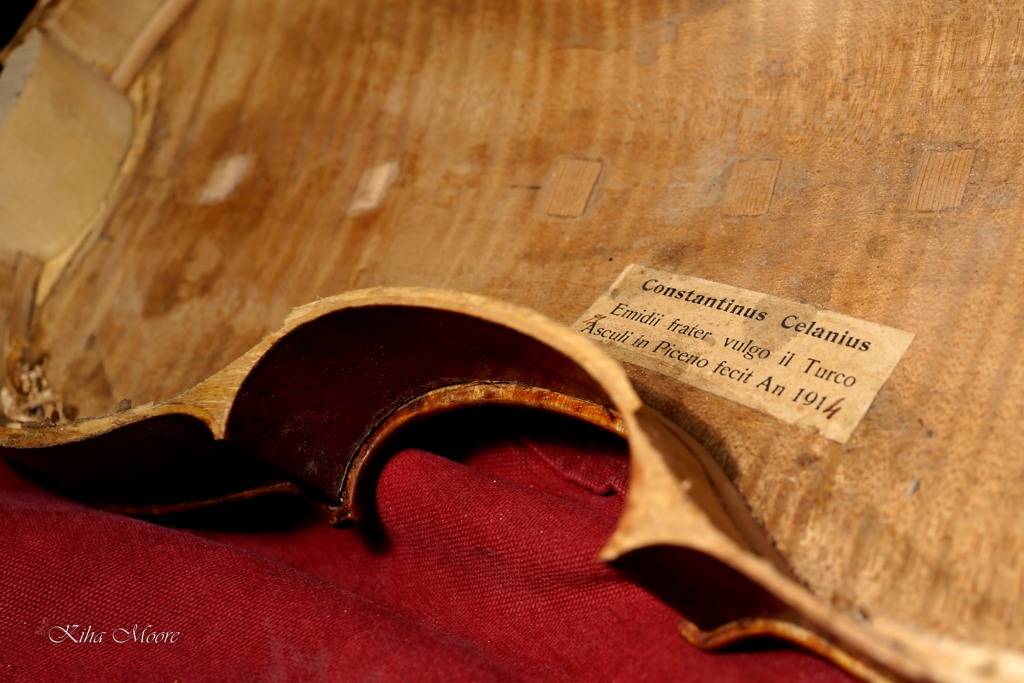 Constantinus Celanius
Emidii frater vulgo il Turco
Asculi in Piceno fecit An 1914
Kiha Moore